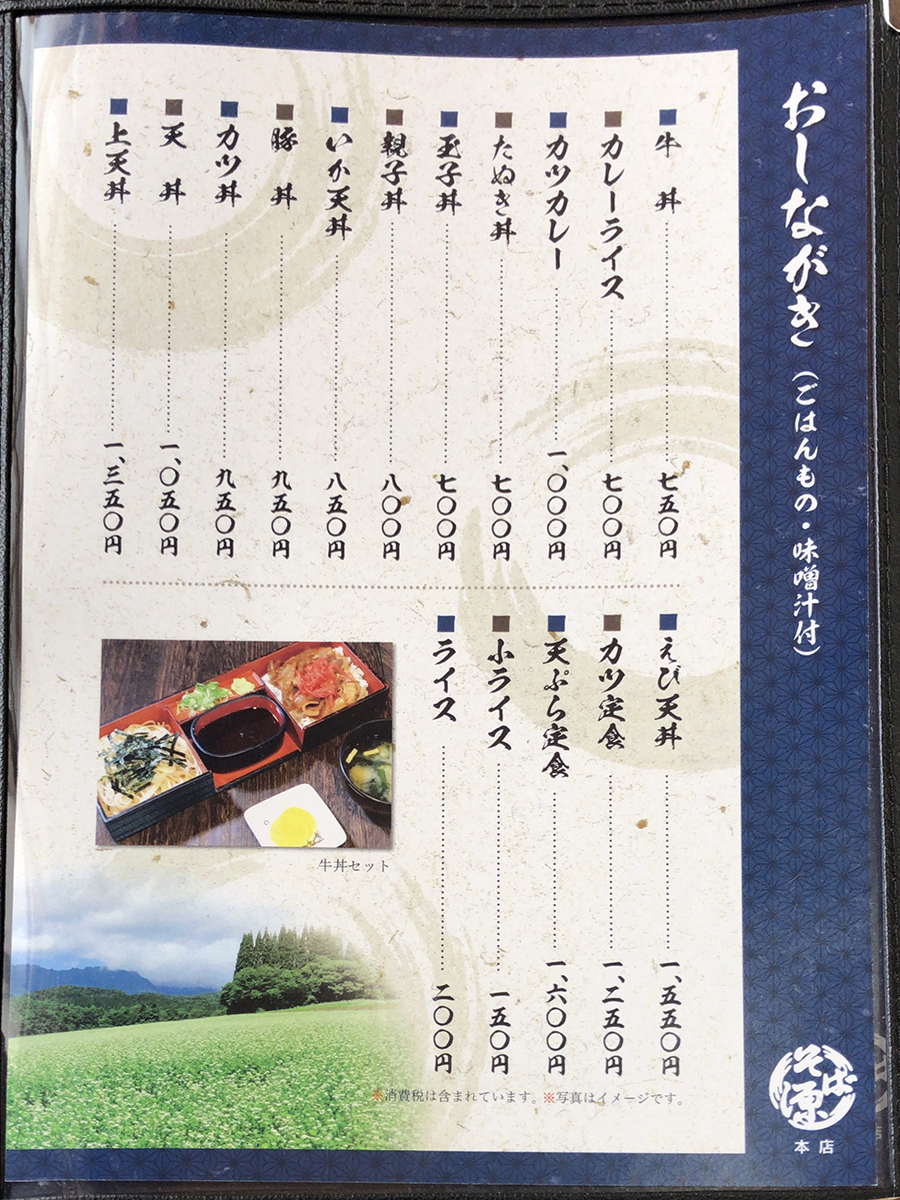 おしながき（ごはんもの・味噌汁付）
牛丼 七五〇円
カレーライス 七〇〇円
カツカレー 一、〇〇〇円
たぬき丼 七〇〇円
玉子丼 七〇〇円
親子丼 八〇〇円
いか天丼 八五〇円
豚丼 九五〇円
カツ丼 九五〇円
天丼 一、〇五〇円
上天丼 一、三五〇円
えび天丼 一、五五〇円
カツ定食 一、二五〇円
天ぷら定食 一、六〇〇円
小ライス 一五〇円
ライス 二〇〇円
牛丼セット
※消費税は含まれています。※写真はイメージです。
そば源
本店